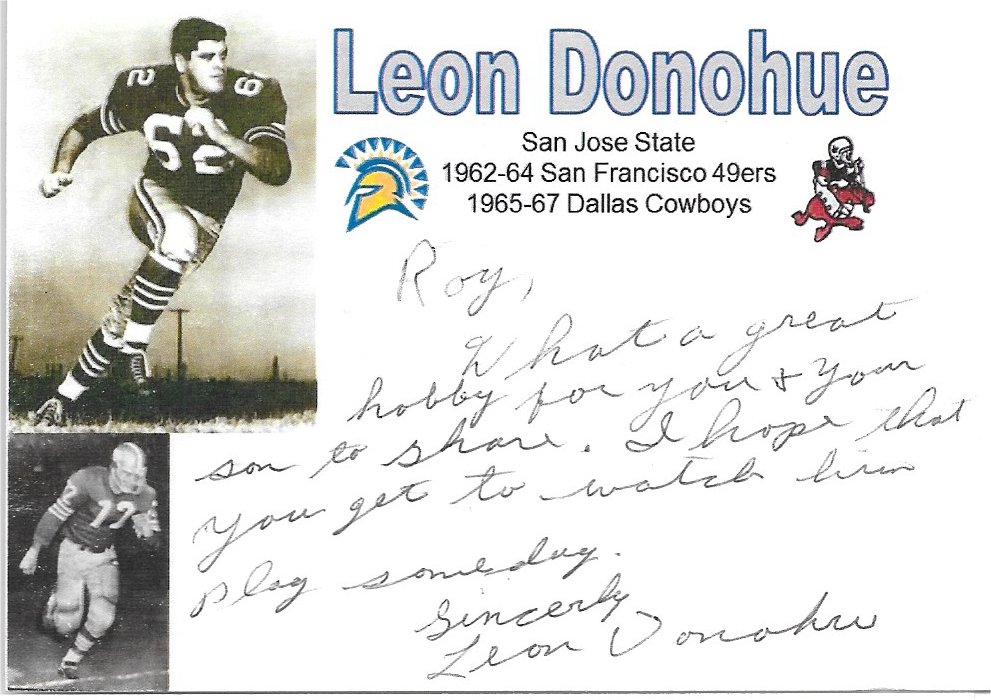 Leon Donohue
San Jose State
1962-64 San Francisco 49ers
1965-67 Dallas Cowboys
62
62
77
Roy,
What a great
hobby for you & your
son to share. I hope that
you get to watch him
play someday.
Sincerly
Leon Donohue